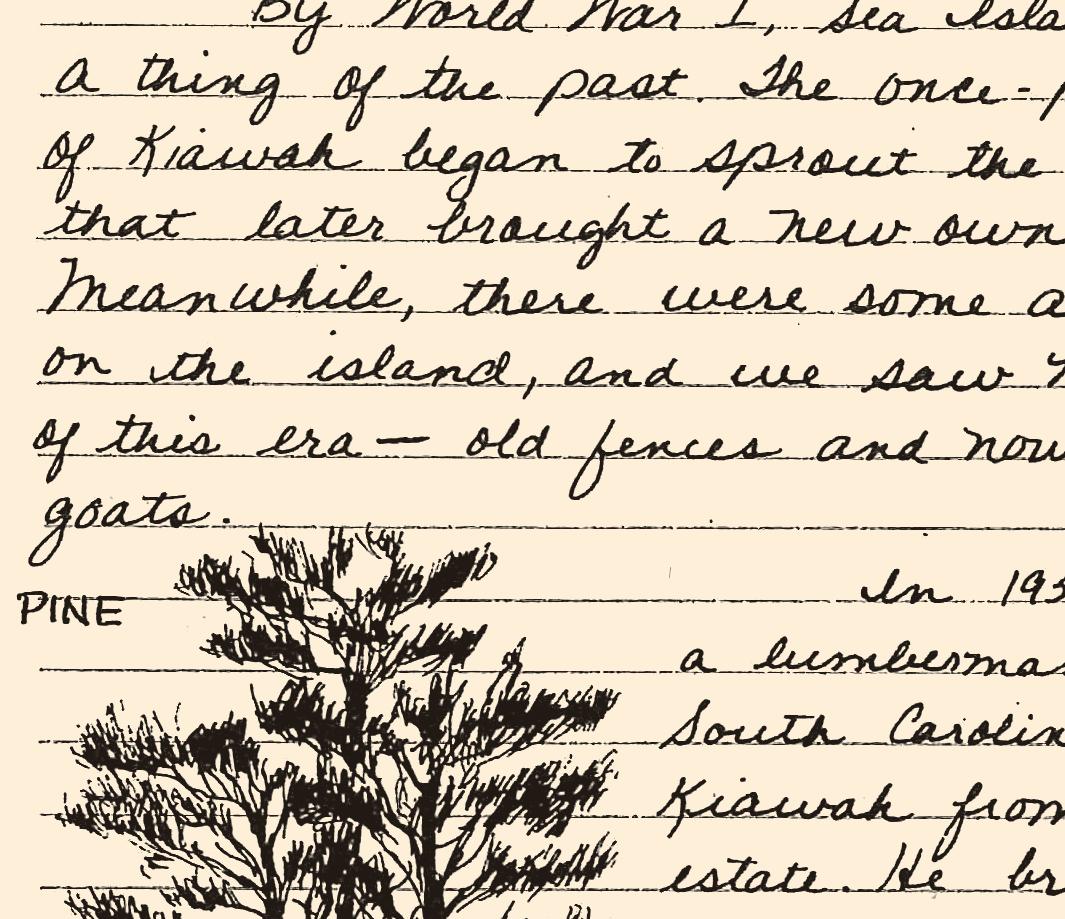 By World War I, Sea Isla
a thing of the past. The once-p
of Kiawah began to sprout the
that later brought a new own
Meanwhile, there were some a
on the island, and we saw
of this era — old fences and now
goats.
In 193
PINE
a lumberma
South Carolin
Kiawah from
estate. He br